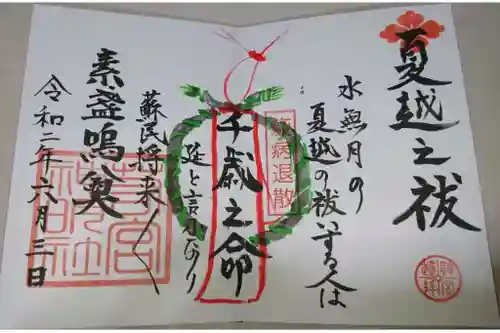 夏越之祓
水無月の
夏越の祓いする人は
疫病退散
千歳之命
延と言うなり
蘇民将来
素盞嗚尊
令和二年六月三日